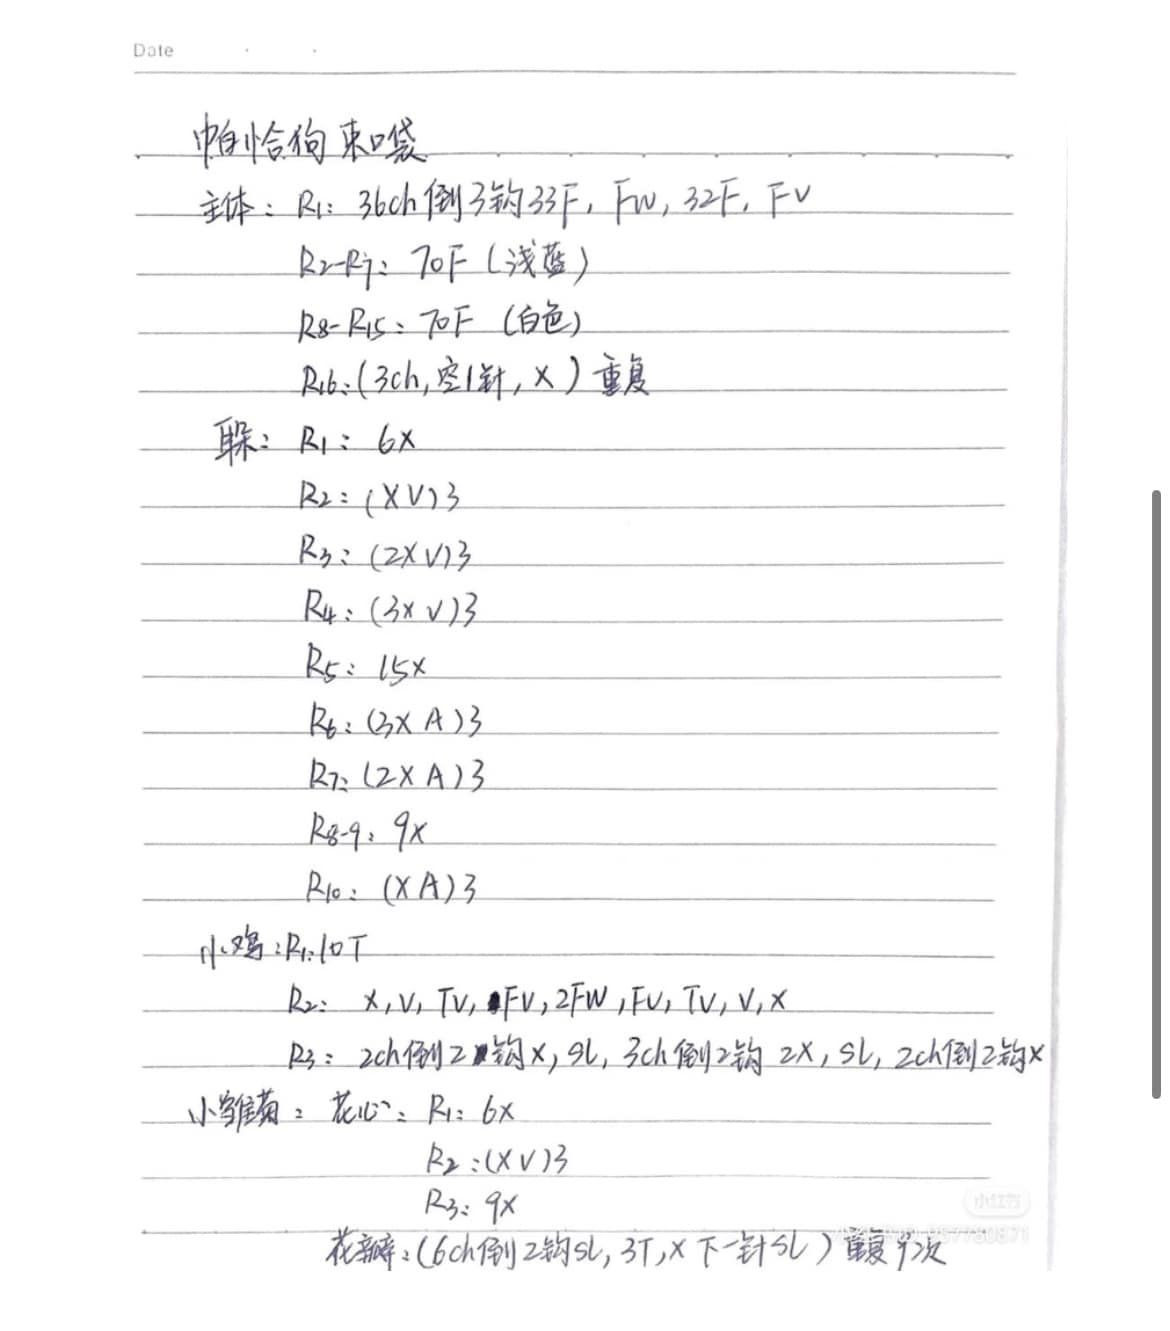 Date
帕恰狗束口袋
主体: R1: 36ch倒3钩33F, FW, 32F, FV
R2-R7: 70F (浅蓝)
R8-R15: 70F (白色)
R16: (3ch, 空1针, X) 重复
耳朵: R1: 6X
R2: (XV)3
R3: (2XV)3
R4: (3XV)3
R5: 15X
R6: (3XA)3
R7: (2XA)3
R8-9: 9X
R10: (XA)3
小鸡: R1: 10T
R2: X, V, TV, FV, 2FW, FV, TV, V, X
R3: 2ch倒2钩X, SL, 3ch倒2钩2X, SL, 2ch倒2钩X
小雏菊: 花心: R1: 6X
R2: (XV)3
R3: 9X
小红书
花瓣: (6ch倒2钩SL, 3T, X下一针SL) 重复9次